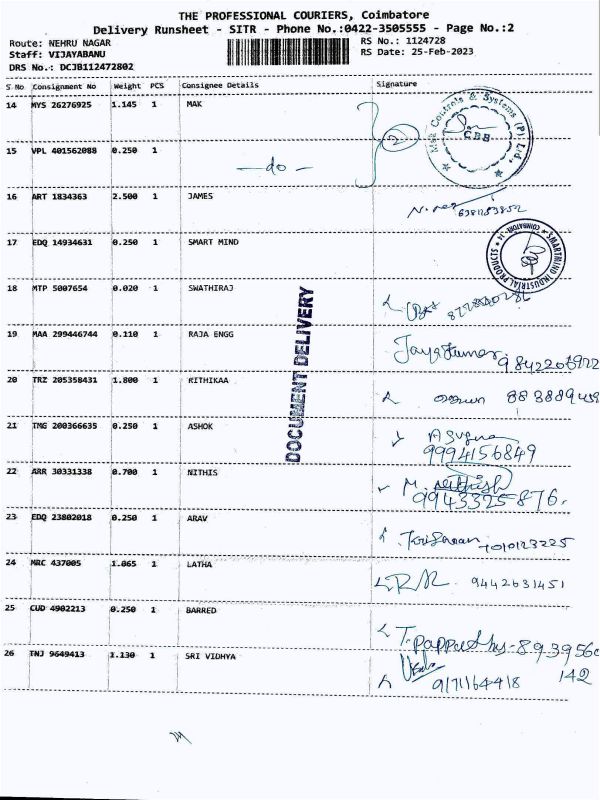 THE PROFESSIONAL COURIERS, Coimbatore
Delivery Runsheet - SITR - Phone No.:0422-3505555 - Page No.:2
Route: NEHRU NAGAR RS No.: 1124728
Staff: VIJAYABANU RS Date: 25-Feb-2023
DRS No.: DCJB112472802
S No Consignment No Weight PCS Consignee Details Signature
14 MYS 26276925 1.145 1 MAK 2 Mak Controls & Systems (P) Ltd., CBE
15 VPL 401562088 0.250 1 —do—
16 ART 1834363 2.500 1 JAMES
17 EDQ 14934631 0.250 1 SMART MIND SMARTMIND INDUSTRIAL PRODUCTS COIMBATORE
18 MTP 5007654 0.020 1 SWATHIRAJ
19 MAA 299446744 0.110 1 RAJA ENGG Jayakumar 9842206922
20 TRZ 205358431 1.800 1 KITHIKAA
21 TMG 200366635 0.250 1 ASHOK
9994156849
22 ARR 30331338 0.700 1 NITHIS M. Nithish
9943325876.
23 EDQ 23802018 0.250 1 ARAV 7010123225
24 MRC 437005 1.065 1 LATHA 9442631451
25 CUD 4902213 0.250 1 BARRED
26 TNJ 9649413 1.130 1 SRI VIDHYA 142
9171164418
DOCUMENT DELIVERY